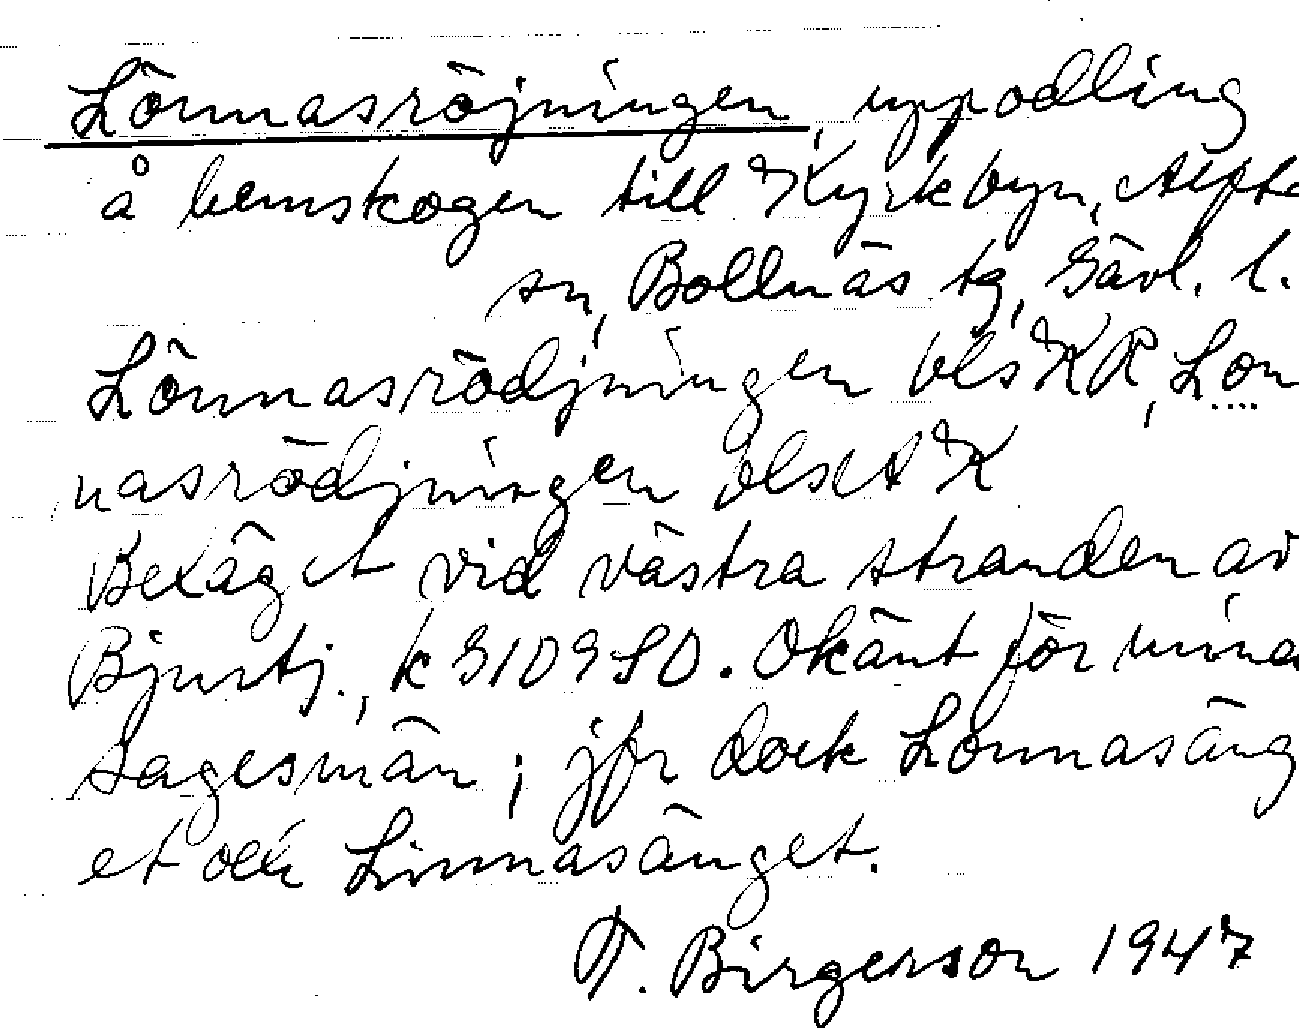 Lönnasröjningen, uppodling
å hemskogen till Kyrkbyn, Alfta
sn, Bollnäs tg, Gävl. l.
Lönnasrödjningen bls KR, Lon
nasrödjningen bls AK
Beläget vid västra stranden av
Bjurtj., k 9109 SO. Okänt för mina
sagesmän; jfr dock Lonnasäng
et och Linnasänget.
T. Birgerson 1947